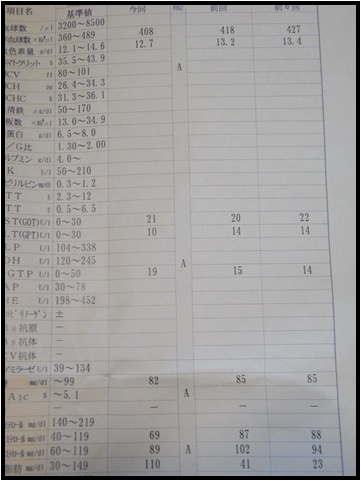 項目名 基準値 今回 前回 前々回
血球数 /μl 3200～8500
血球数 360～489 408 418 427
色素量 g/dl 12.1～14.6 12.7 13.2 13.4
マトクリット % 35.5～43.9
CV 80～101 A
CH pg 26.4～34.3
CHC % 31.3～36.1
清鉄 50～170
板数 13.0～34.9
蛋白 g/dl 6.5～8.0
／G比 1.30～2.00
ルブミン g/dl 4.0～
K 50～210
ビリルビン mg/dl 0.3～1.2
TT 2.3～12
TT 0.5～6.5
ST(GOT) 0～30 21 20 22
LT(GPT) 0～30 10 14 14
LP 104～338
DH 120～245 A
GTP 0～50 19 15 14
AP 30～78
HE 198～452
ビリノーゲン ±
s抗原 －
s抗体 －
CV抗体 －
アミラーゼ 39～134
mg/dl ～99 82 85 85
A1c % ～5.1 A
－ － －
mg/dl 140～219
mg/dl 40～119 69 87 88
mg/dl 60～119 89 A 102 94
脂肪 mg/dl 30～149 110 41 23